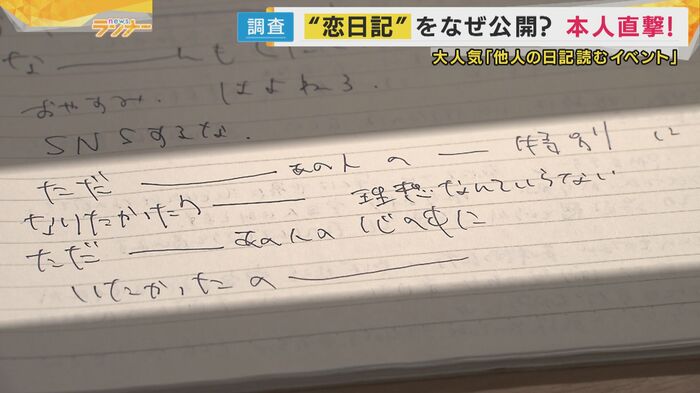 news
ランナー
調査 “恋日記”をなぜ公開? 本人直撃!
大人気「他人の日記読むイベント」
おやすみ. はよねろ.
SNSするな.
ただ ——— あの人の — 特別に
なりたかったの ——— 理想なんていらない
ただ ——— あの人の 心の中に
いたかったの ———